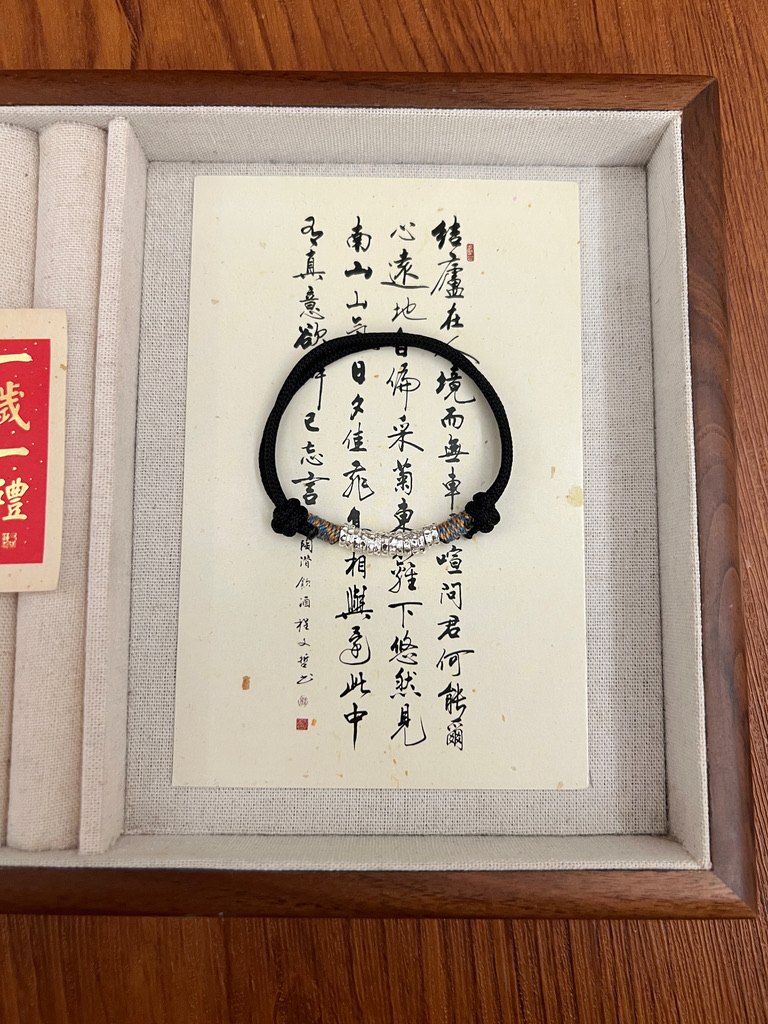 結廬在人境而無車喧問君何能爾
心遠地自偏采菊東籬下悠然見
南山山氣日夕佳飛鳥相與還此中
有真意欲辨已忘言
陶潛飲酒程文哲书
一歲一禮